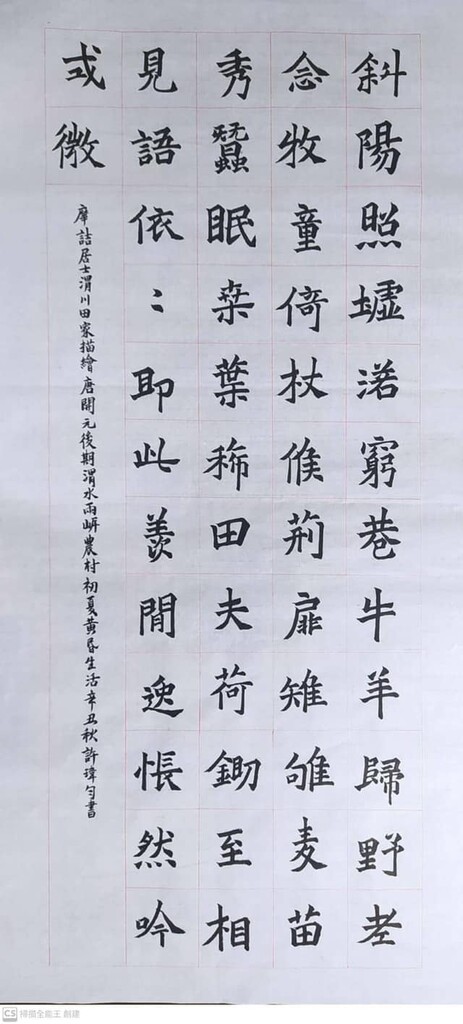 斜陽照墟落窮巷牛羊歸野老
念牧童倚杖候荊扉雉雊麦苗
秀蠶眠桒葉稀田夫荷鋤至相
見語依〻即此羨閒逸悵然吟
式微
摩詰居士渭川田家描繪唐開元後期渭水兩岍農村初夏黃昏生活辛丑秋許瑋勻書
CS 掃描全能王 創建